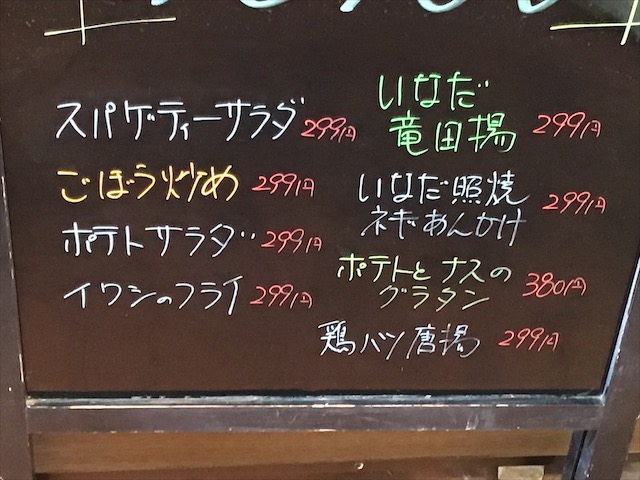 スパゲティーサラダ 299円
ごぼう炒め 299円
ポテトサラダ 299円
イワシのフライ 299円
いなだ
竜田揚 299円
いなだ照焼
ネギあんかけ 299円
ポテトとナスの
グラタン 380円
鶏ハツ唐揚 299円